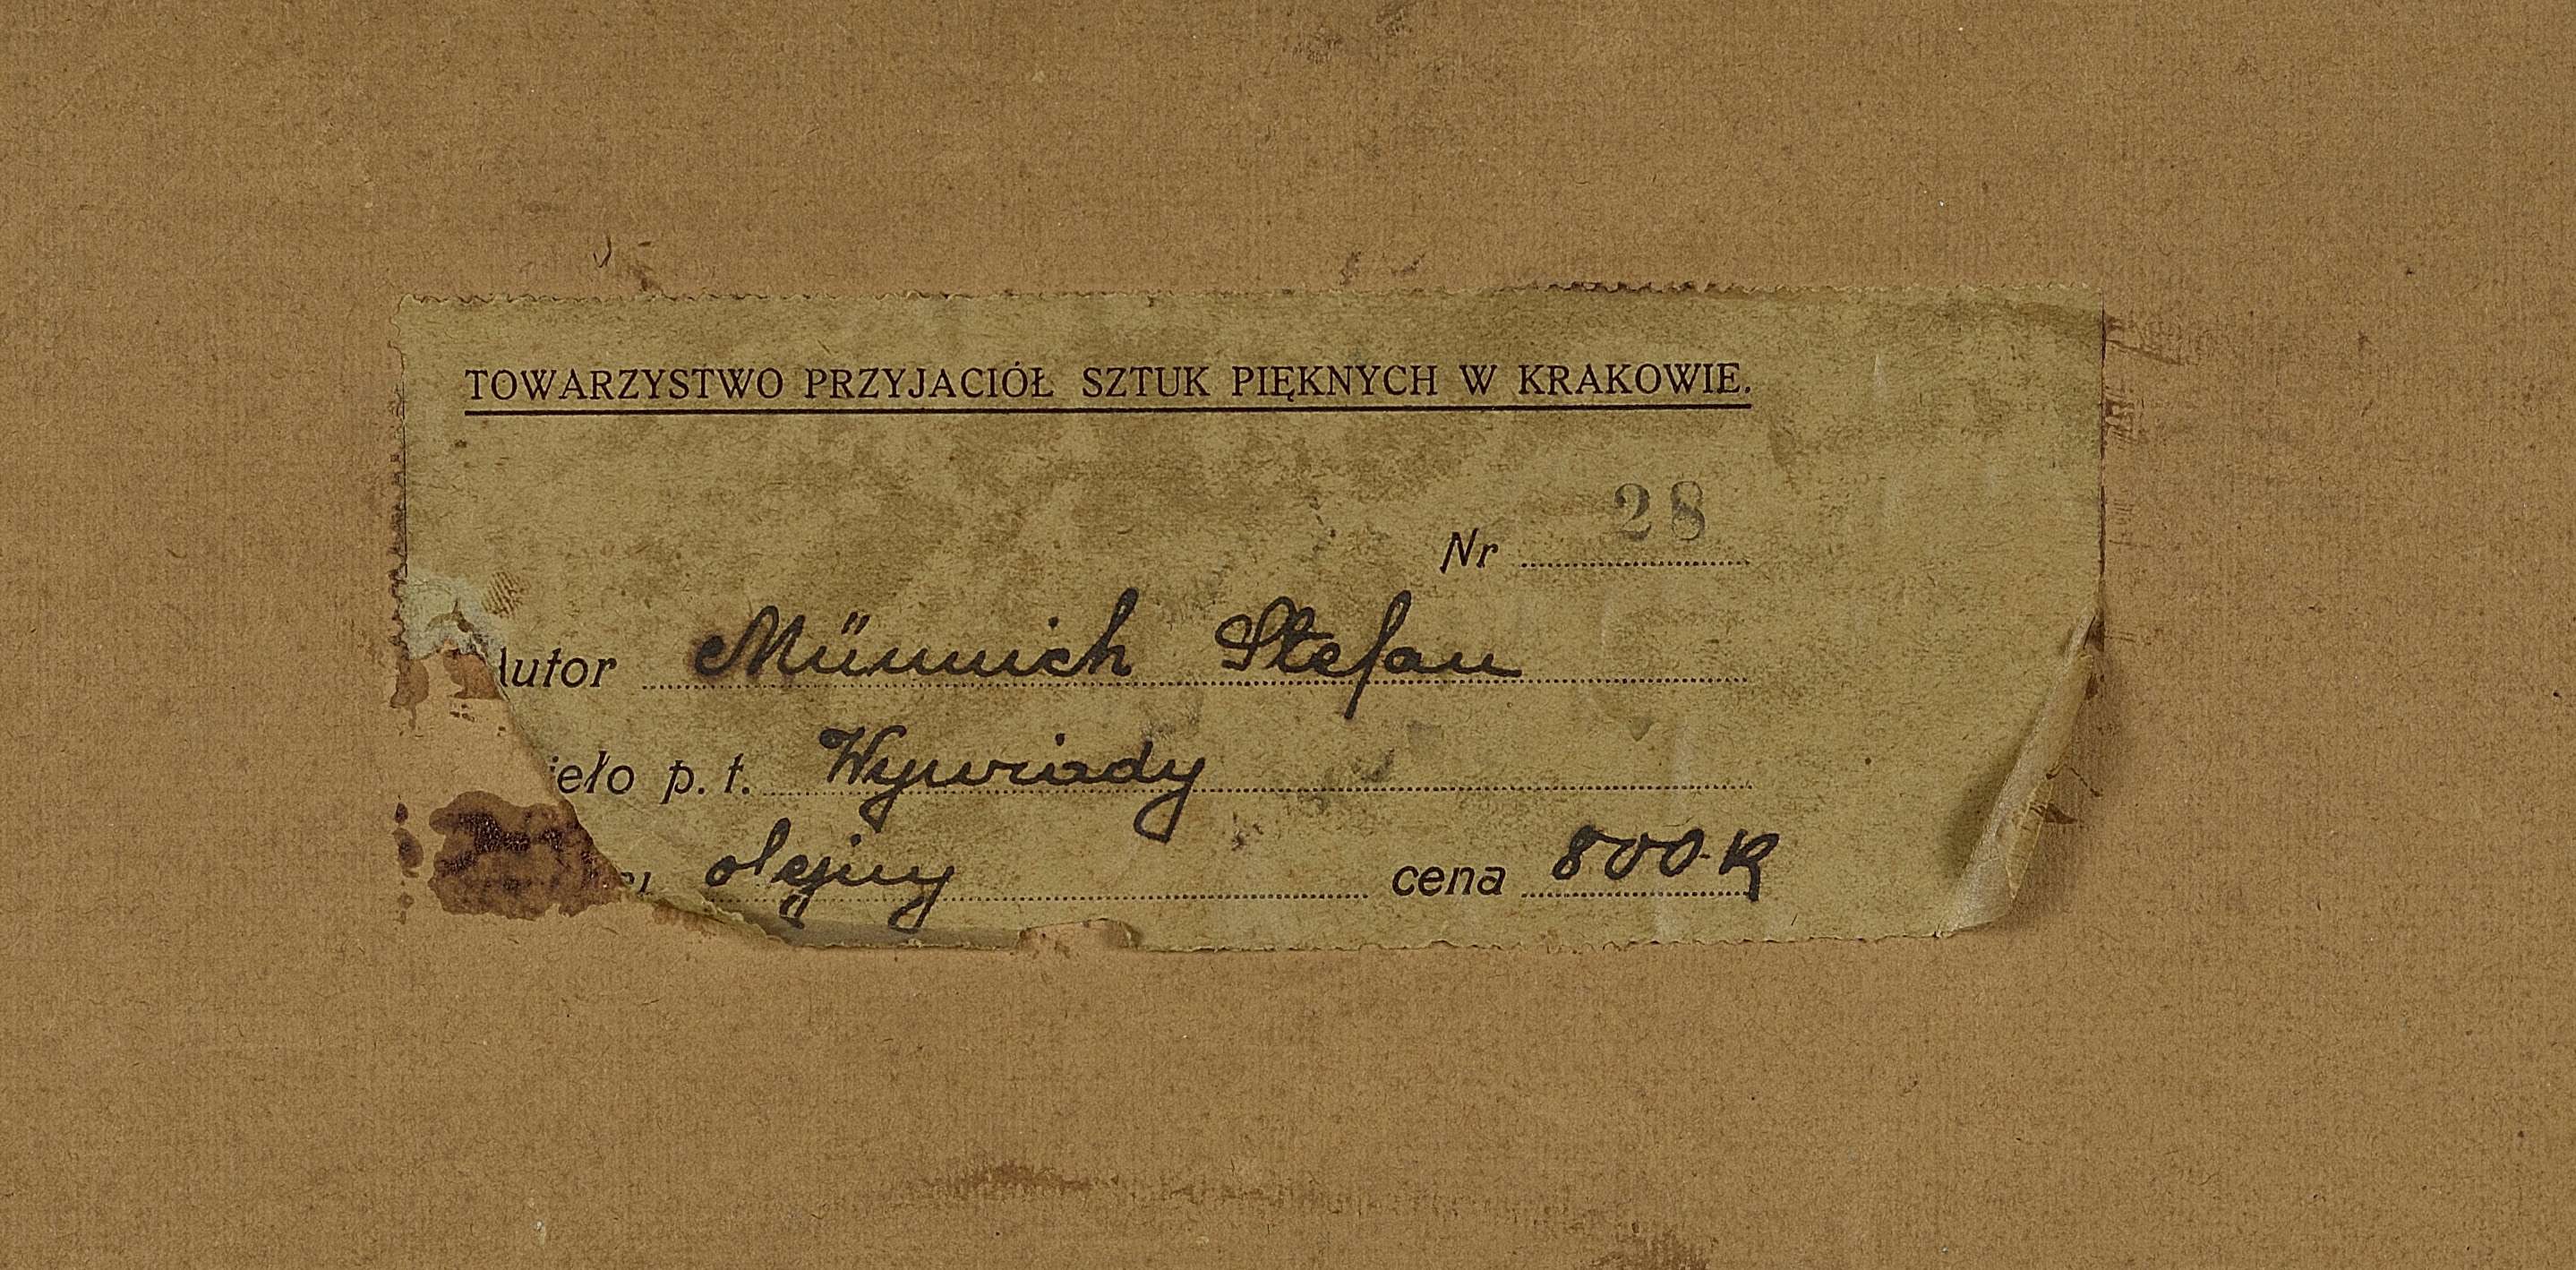 TOWARZYSTWO PRZYJACIÓŁ SZTUK PIĘKNYCH W KRAKOWIE.
Nr 28
Autor Münnich Stefan
ieło p. t. Wywiady
olejny cena 800 K